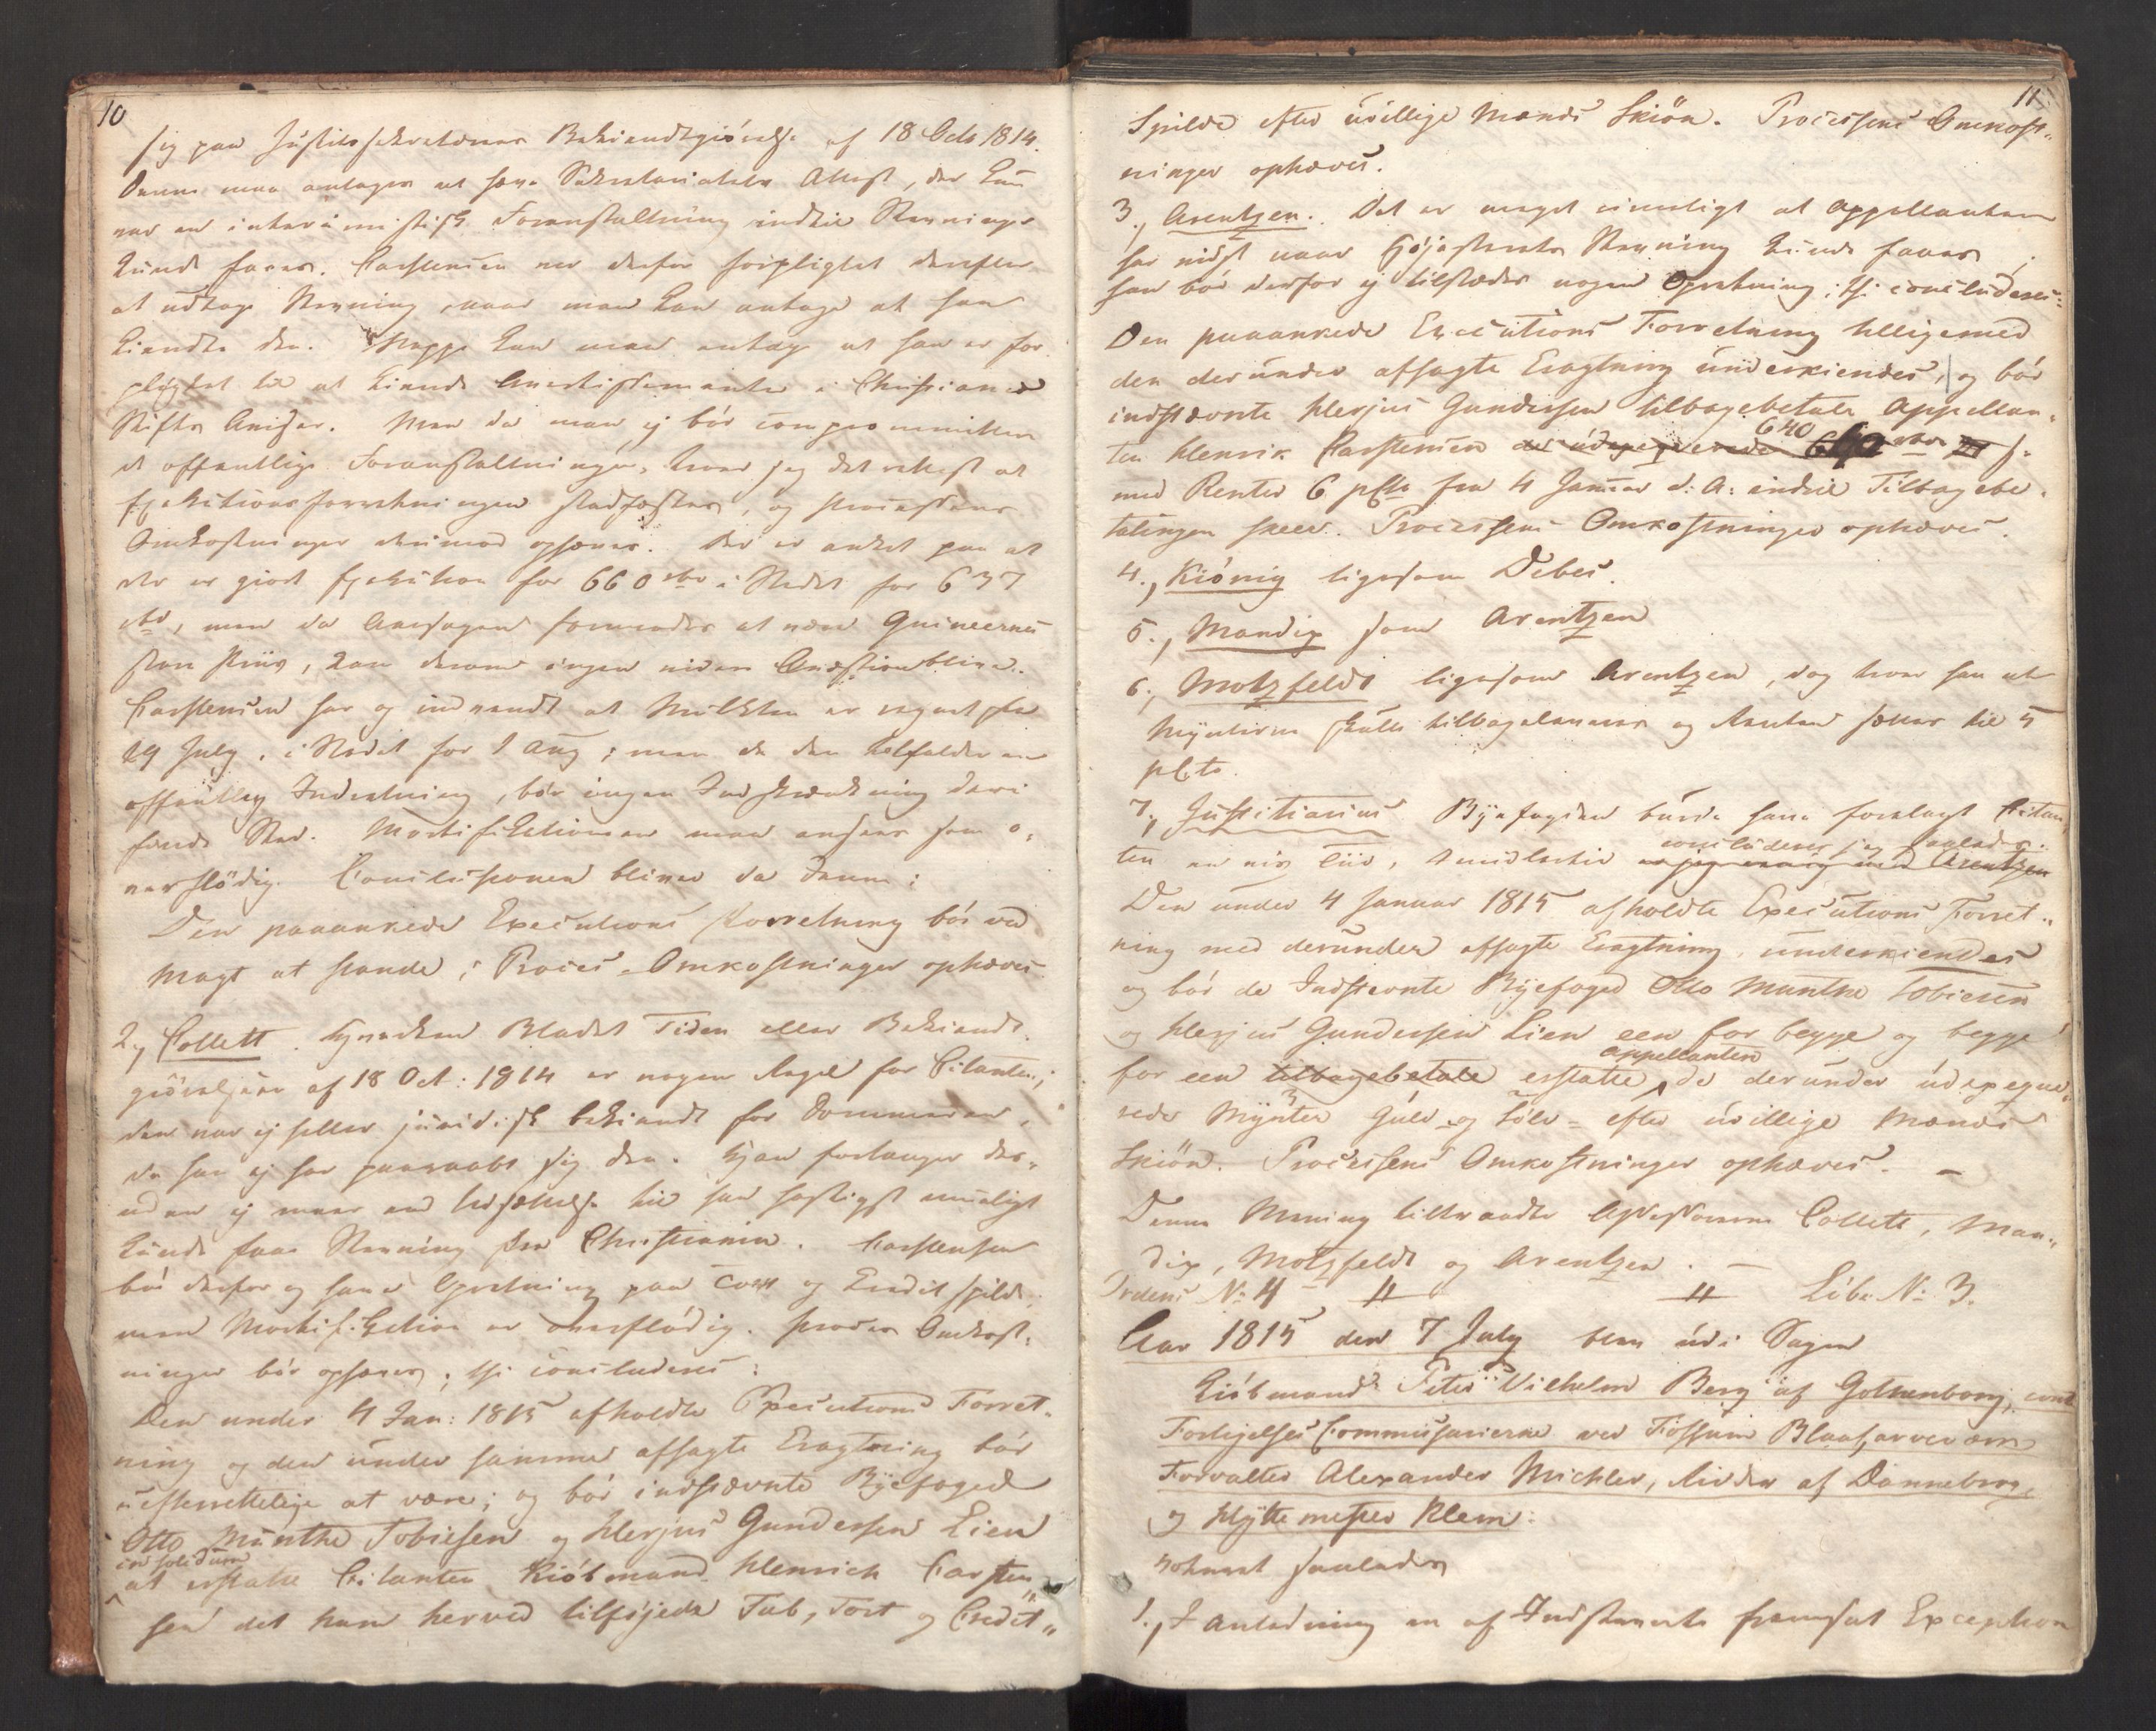 10
sig paa Justitssekretærens Bekiendtgiörelse af 18 Octb 1814.
Denne maa antages at være Sekretariatets Attest, der kun
var en interimistisk Foranstaltning indtil Stevninger
kunde faaes. Carstensen var derfor forpligtet derefter
at udtage Stevning, naar man kan antage at han
kiendte den. Neppe kan man antage at han er for
pligtet til at kiende Avertissementer i Christiania
Stifts Aviser. Men da man ej bör compromittere
et offentlige Foranstaltninger, troer jeg det rettest at
Exekutionsforretningen stadfæstes, og Processens
Omkostninger derimod ophæves. Der er anket paa at
der er giort Exekution for 660 rbd i Stedet for 637
rbd, men da Aarsagen formeenes at være Guineernes
Priis, kan derom ingen videre Qvæstion blive.
Carstensen har og indvendt at Mulkten er regnet fra
29 July, i Stedet for 1 Aug; men da den tilfalder en
offentlig Indretning, bör ingen Indskrænkning deri
finde Sted. Mortifikationen maa ansees som o-
verflödig. Conclusionen bliver da denne:
Den paaankede Executions Forretning bör ved
Magt at stande; Proces-Omkostninger ophæves.
2, Collett. Hverken Bladet Tiden eller Bekiendt-
giörelsen af 18 Oct: 1814 er nogen Regel for Citanten;
den var ej heller juridisk bekiendt for Dommeren,
da han ej har paaraabt sig den. Han forlanger des-
uden ej mere end Udsættelse til han hastigst mueligt
kunde faae Stevning fra Christiania. Carstensen
bör derfor og have Opretning paa Tort og Credit spilde;
men Mortifikation er overflödig. Proces Omkost-
ninger bör ophæves; thi concluderes:
Den under 4 Jan: 1815 afholdte Executions Forret-
ning og den under samme afsagte Eragtning bör
uefterrettelige at være; og bör indstævnte Byefoged
Otto Munthe Tobiesen og Herjus Gundersen Lien
in solidum
at erstatte Citanten Kiöbmand Henrich Carsten-
sen det ham herved tilföjede Tab, Tort og Credit-
11
Spilde efter uvillige Mænds Skiön. Processens Omkost-
ninger ophæves.
3, Arentzen. Det er meget rimeligt at Appellanten
har vidst naar Höjesterets Stevning kunde faaes;
han bör derfor ej tilstædes nogen Opretning; thi concluderes:
Den paaankede Executions Forretning tilligemed
den derunder afsagte Eragtning underkiendes, og bör
indstævnte Herjus Gundersen tilbagebetale Appellan-
640
ten Henrik Carstensen de udpegede rbd
med Renter 6 pCto fra 4 Januar d: A: indtil Tilbagebe-
talingen skeer. Processens Omkostninger ophæves.
4., Kiönig ligesom Debes.
5., Mandix som Arentzen
6., Motzfeldt ligesom Arentzen, dog troer han at
Mynterne skulle tilbageleveres og Renten sættes til 5
pCto.
7, Justitiarius Byefogden burde have forelagt Citan-
concluderer jeg saaledes:
ten en vis Tiid, imidlertid er jeg eenig med Arentzen
Den under 4 Januar 1815 afholdte Executions Forret-
ning med derunder afsagte Eragtning, underkiendes
og bör de Indstevnte Byefoged Otto Munthe Tobiesen
og Herjus Gundersen Lien een for begge og begge
appellanten
for een tilbagebetale erstatte de derunder udpegne-
rede Mynter Guld- og Sölv- efter uvillige Mænds
Skiön. Processens Omkostninger ophæves. –
Denne Mening tiltraadte Assessorerne Collett, Man-
dix, Motzfeldt og Arentzen. –
Ordens No 4 – Löbe No 3.
Aar 1815 den 7 July blev udi Sagen
Kiöbmand Peter Vilhelm Berg af Gothenborg, contra
Forligelses Commissairerne ved Fossum Blaafarveværk
Forvalter Alexander Michler, Ridder af Dannebrog,
og Hyttemester Klem:
voteret saaledes
1., I Anledning en af Indstevnte fremsat Exception